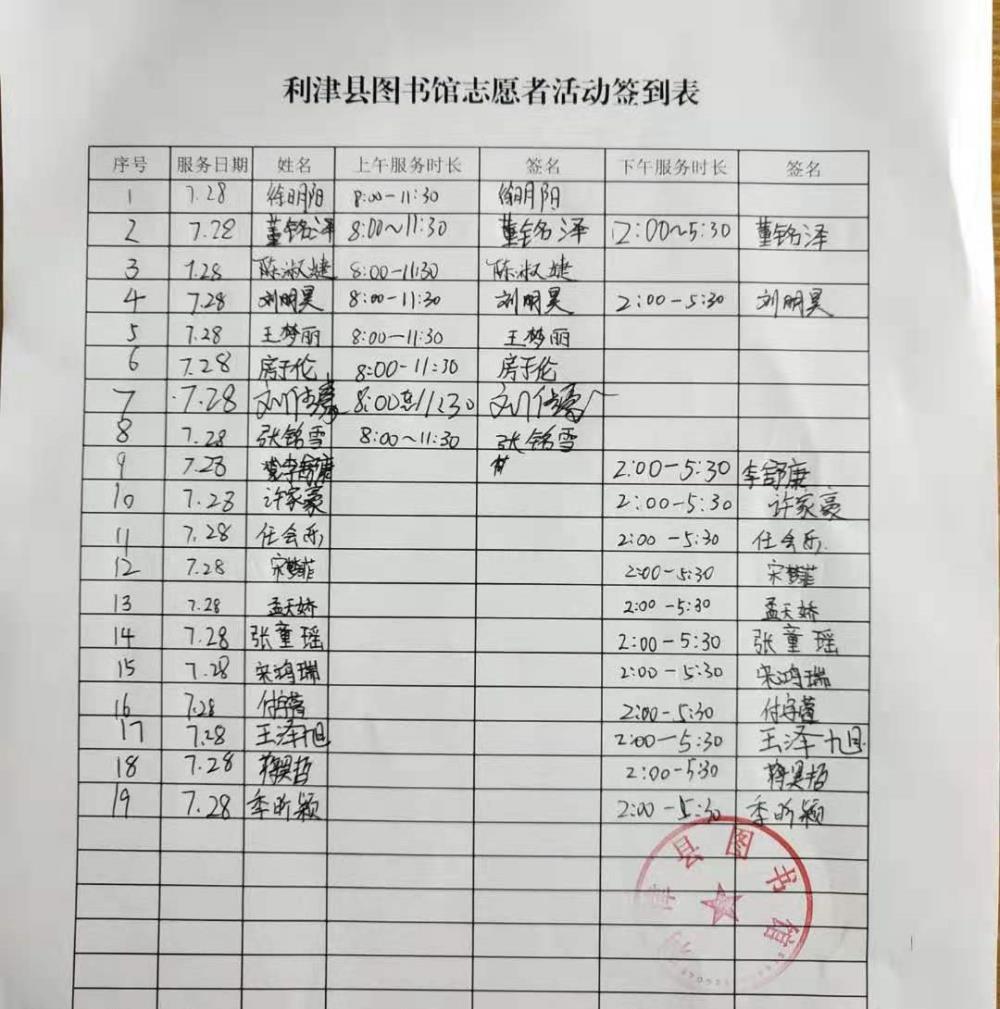 利津县图书馆志愿者活动签到表
序号 服务日期 姓名 上午服务时长 签名 下午服务时长 签名
1 7.28 徐明阳 8:00-11:30 徐明阳
2 7.28 董铭泽 8:00~11:30 董铭泽 2:00~5:30 董铭泽
3 7.28 陈淑婕 8:00-11:30 陈淑婕
4 7.28 刘明昊 8:00-11:30 刘明昊 2:00-5:30 刘明昊
5 7.28 王梦丽 8:00-11:30 王梦丽
6 7.28 房于伦 8:00-11:30 房于伦
7 7.28 8:00 11:30
8 7.28 张铭雪 8:00~11:30 张铭雪
9 7.28 李舒康 2:00-5:30 李舒康
10 7.28 许家豪 2:00-5:30 许家豪
11 7.28 任会乐 2:00-5:30 任会乐
12 7.28 宋梦菲 2:00-5:30 宋梦菲
13 7.28 孟天娇 2:00-5:30 孟天娇
14 7.28 张童瑶 2:00-5:30 张童瑶
15 7.28 宋鸿瑞 2:00-5:30 宋鸿瑞
16 7.28 2:00-5:30
17 7.28 王泽旭 2:00-5:30 王泽旭
18 7.28 蒋昊哲 2:00-5:30 蒋昊哲
19 7.28 季昕颖 2:00-5:30 季昕颖
利津县图书馆